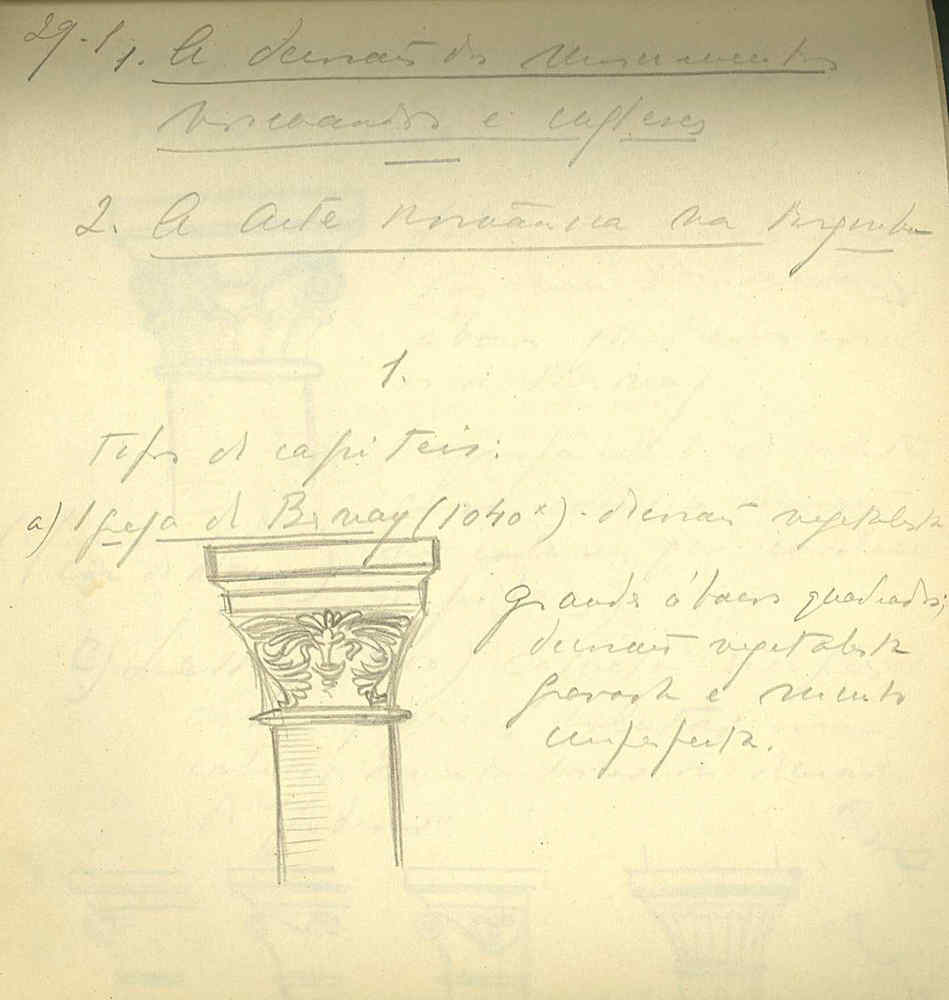 29.1
1. A decoração dos monumentos
normandos e ingleses
2. A Arte românica na Borgonha
1.
Tipos de capiteis:
a) Igreja de Bernay (1040) - decoração vegetalista
grandes ábacos quadrados;
decoração vegetalista
grosseira e muito
imperfeita.